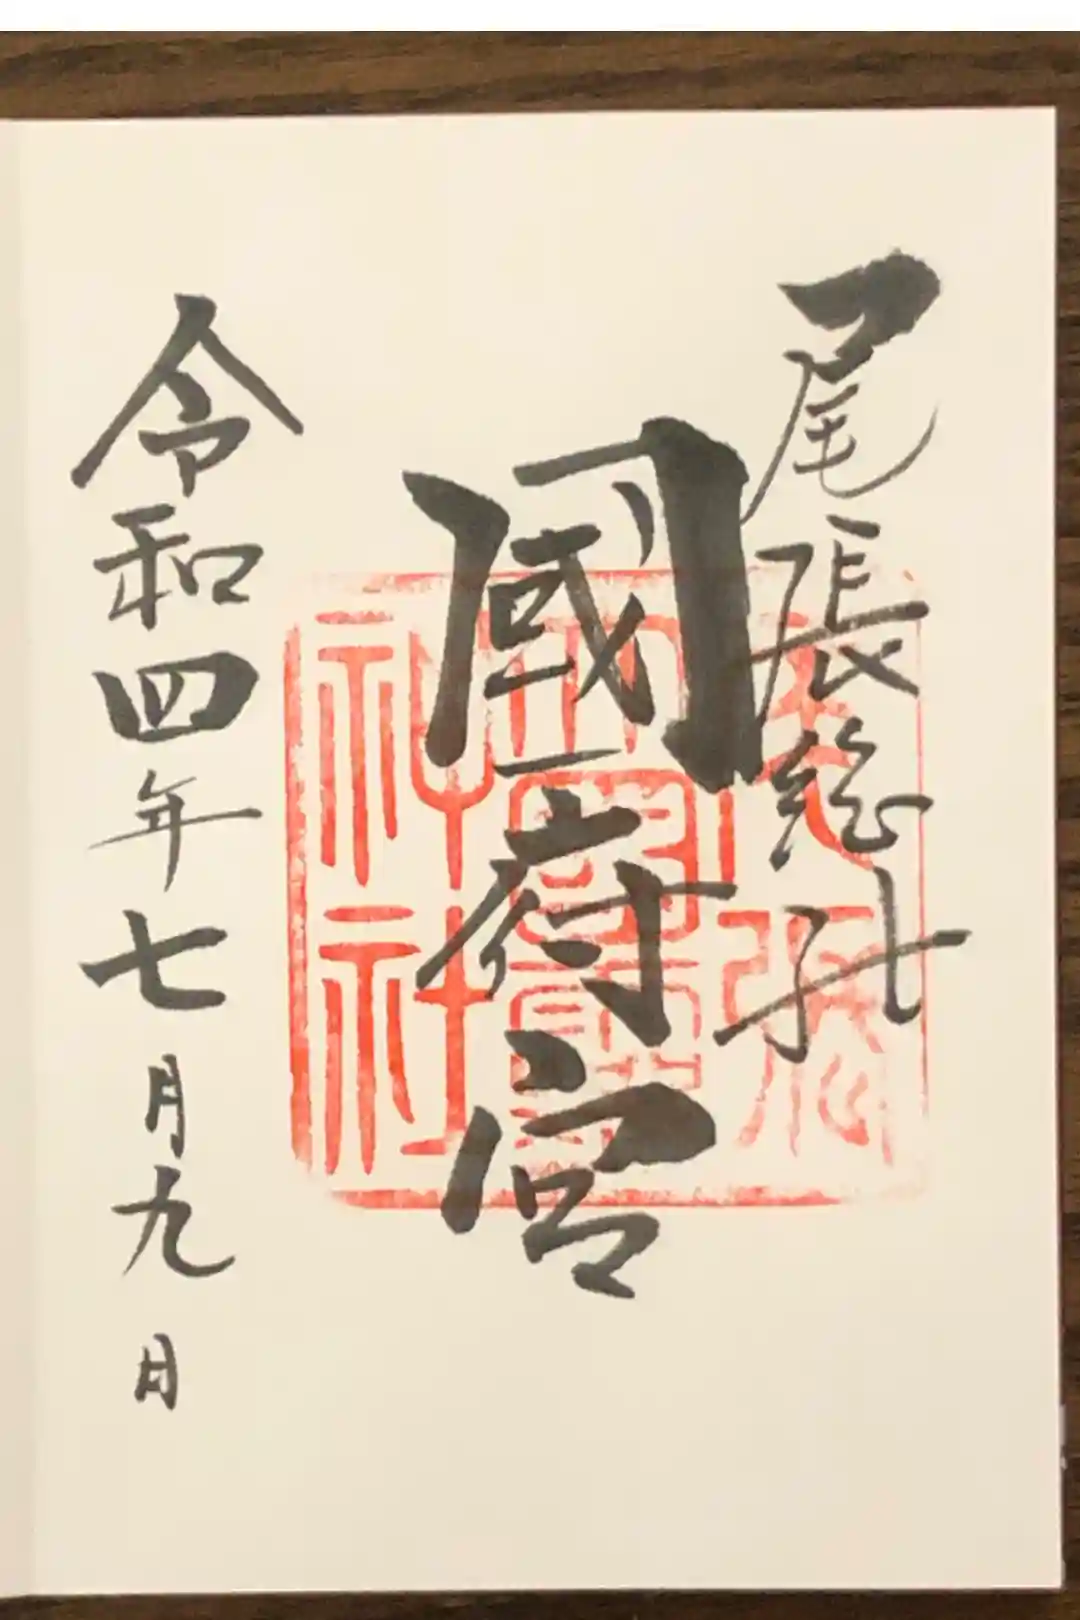 尾張総社
國府宮
令和四年七月九日
尾張
大國霊
神社